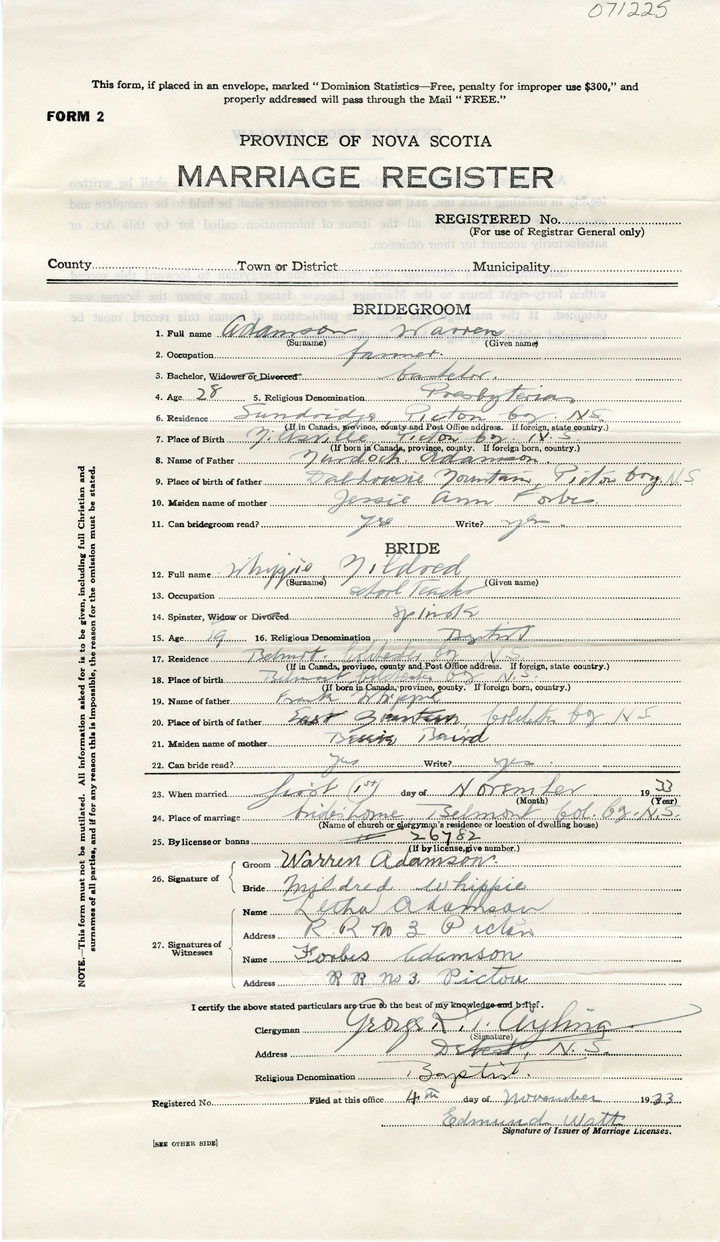 071225
This form, if placed in an envelope, marked "Dominion Statistics—Free, penalty for improper use $300," and
properly addressed will pass through the Mail "FREE."
FORM 2
PROVINCE OF NOVA SCOTIA
MARRIAGE REGISTER
REGISTERED No.
(For use of Registrar General only)
County Town or District Municipality
BRIDEGROOM
1. Full name Adamson Warren
(Surname) (Given name)
2. Occupation farmer.
3. Bachelor, Widower or Divorced bachelor.
4. Age 28 5. Religious Denomination Presbyterian
6. Residence Sundridge, Pictou Co. N.S.
(If in Canada, province, county and Post Office address. If foreign, state country.)
7. Place of Birth Pictou Co. N.S.
(If born in Canada, province, county. If foreign born, country.)
8. Name of Father Murdoch Adamson.
9. Place of birth of father Dalhousie Mountain, Pictou Co. N.S
10. Maiden name of mother Jessie Ann Forbes.
11. Can bridegroom read? yes Write? yes
BRIDE
12. Full name Whippie Mildred
(Surname) (Given name)
13. Occupation school Teacher
14. Spinster, Widow or Divorced Spinster
15. Age 19 16. Religious Denomination Baptist
17. Residence Belmont. Colchester Co. N.S.
(If in Canada, province, county and Post Office address. If foreign, state country.)
18. Place of birth Belmont Colchester Co. N.S.
(If born in Canada, province, county. If foreign born, country.)
19. Name of father Frank Whippie
20. Place of birth of father East Mountain, Colchester Co N.S
21. Maiden name of mother Bessie Baird
22. Can bride read? yes Write? yes.
23. When married first (1st) day of November 1933
(Month) (Year)
24. Place of marriage brides home, Belmont Col. Co. N.S.
(Name of church or clergyman's residence or location of dwelling house)
25. By license or banns 26782
(If by license, give number.)
26. Signature of
Groom Warren Adamson.
Bride Mildred Whippie
27. Signatures of Witnesses
Name Letha Adamson
Address R. R No 3 Pictou
Name Forbes Adamson
Address R R No 3. Pictou
I certify the above stated particulars are true to the best of my knowledge and belief.
Clergyman George R. T. Ayling
(Signature)
Address Debert, N.S.
Religious Denomination Baptist.
Registered No. Filed at this office 4th day of November 1933
Edmund Watt
Signature of Issuer of Marriage Licenses.
[SEE OTHER SIDE]
NOTE.—This form must not be mutilated. All information asked for is to be given, including full Christian and
surnames of all parties, and if for any reason this is impossible, the reason for the omission must be stated.